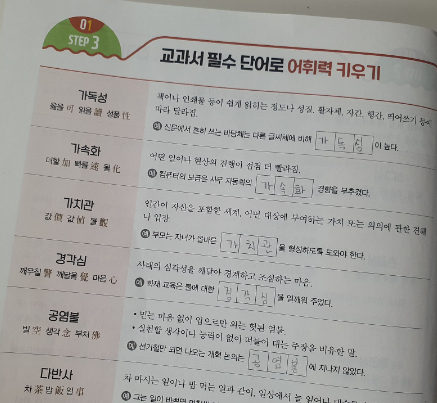 01
STEP 3
교과서 필수 단어로 어휘력 키우기
가독성
옳을 可 읽을 讀 성품 性
책이나 인쇄물 등이 쉽게 읽히는 정도나 성질. 활자체, 자간, 행간, 띄어쓰기 등에
따라 달라짐.
예 신문에서 흔히 쓰는 바탕체는 다른 글씨체에 비해 가독성이 높다.
가속화
더할 加 빠를 速 될 化
어떤 일이나 현상의 진행이 점점 더 빨라짐.
예 컴퓨터의 보급은 사무 자동화의 가속화 경향을 부추겼다.
가치관
값 價 값 値 볼 觀
인간이 자신을 포함한 세계, 어떤 대상에 부여하는 가치 또는 의의에 관한 견해
나 입장.
예 부모는 자녀가 올바른 가치관을 형성하도록 도와야 한다.
경각심
깨우칠 警 깨달을 覺 마음 心
사태의 심각성을 깨달아 경계하고 조심하는 마음.
예 현재 교육은 불에 대한 경각심을 일깨워 주었다.
공염불
빌 空 생각 念 부처 佛
• 믿는 마음 없이 입으로만 외는 헛된 염불.
• 실천할 생각이나 능력이 없이 떠들어 대는 주장을 비유한 말.
예 선거철만 되면 나오는 개혁 논의는 공염불에 지나지 않았다.
다반사
차 茶 밥 飯 일 事
차 마시는 일이나 밥 먹는 일과 같이, 일상에서 늘 일어나
예 그는 일이 바쁘면